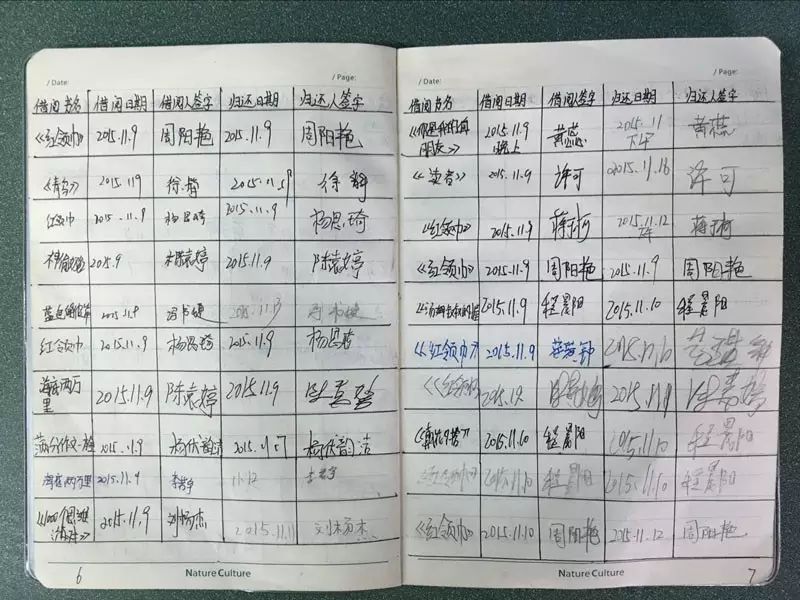 / Date:
/ Page:
借阅书名 借阅日期 借阅人签字 归还日期 归还人签字
《红领巾》 2015.11.9 周阳艳 2015.11.9 周阳艳
《青鸟》 2015.11.9 徐 2015.11.9 徐
红领巾 2015.11.9 杨思琦 2015.11.9 杨思琦
2015.9 陈袁婷 2015.11.9 陈袁婷
2015.11.9 2015.11.13
红领巾 2015.11.9 杨思琦 2015.11.9 杨思琦
海底两万里 2015.11.9 陈袁婷 2015.11.9 陈袁婷
满分作文 2015.11.9 杨伏韵洁 2015.11.17 杨伏韵洁
海底两万里 2015.11.9 李 11.12 李
《1000个 2015.11.9 刘杨杰 2015.11.11 刘杨杰
6
Nature Culture
/ Date:
/ Page:
借阅书名 借阅日期 借阅人签字 归还日期 归还人签字
朋友》 2015.11.9 晚上 黄蕊 2015.11 下午 黄蕊
《读者》 2015.11.9 许可 2015.11.16 许可
《红领巾》 2015.11.9 蒋 2015.11.12 蒋
《红领巾》 2015.11.9 周阳艳 2015.11.9 周阳艳
2015.11.9 程晨阳 2015.11.10 程晨阳
《红领巾》 2015.11.9 2015.11.10
《红领巾》 陈袁婷 2015.11.9 陈袁婷
《朝花夕拾》 2015.11.10 程晨阳 2015.11.10 程晨阳
《红领巾》 2015.11.10 程晨阳 2015.11.10 程晨阳
《红领巾》 2015.11.10 周阳艳 2015.11.12 周阳艳
Nature Culture
7